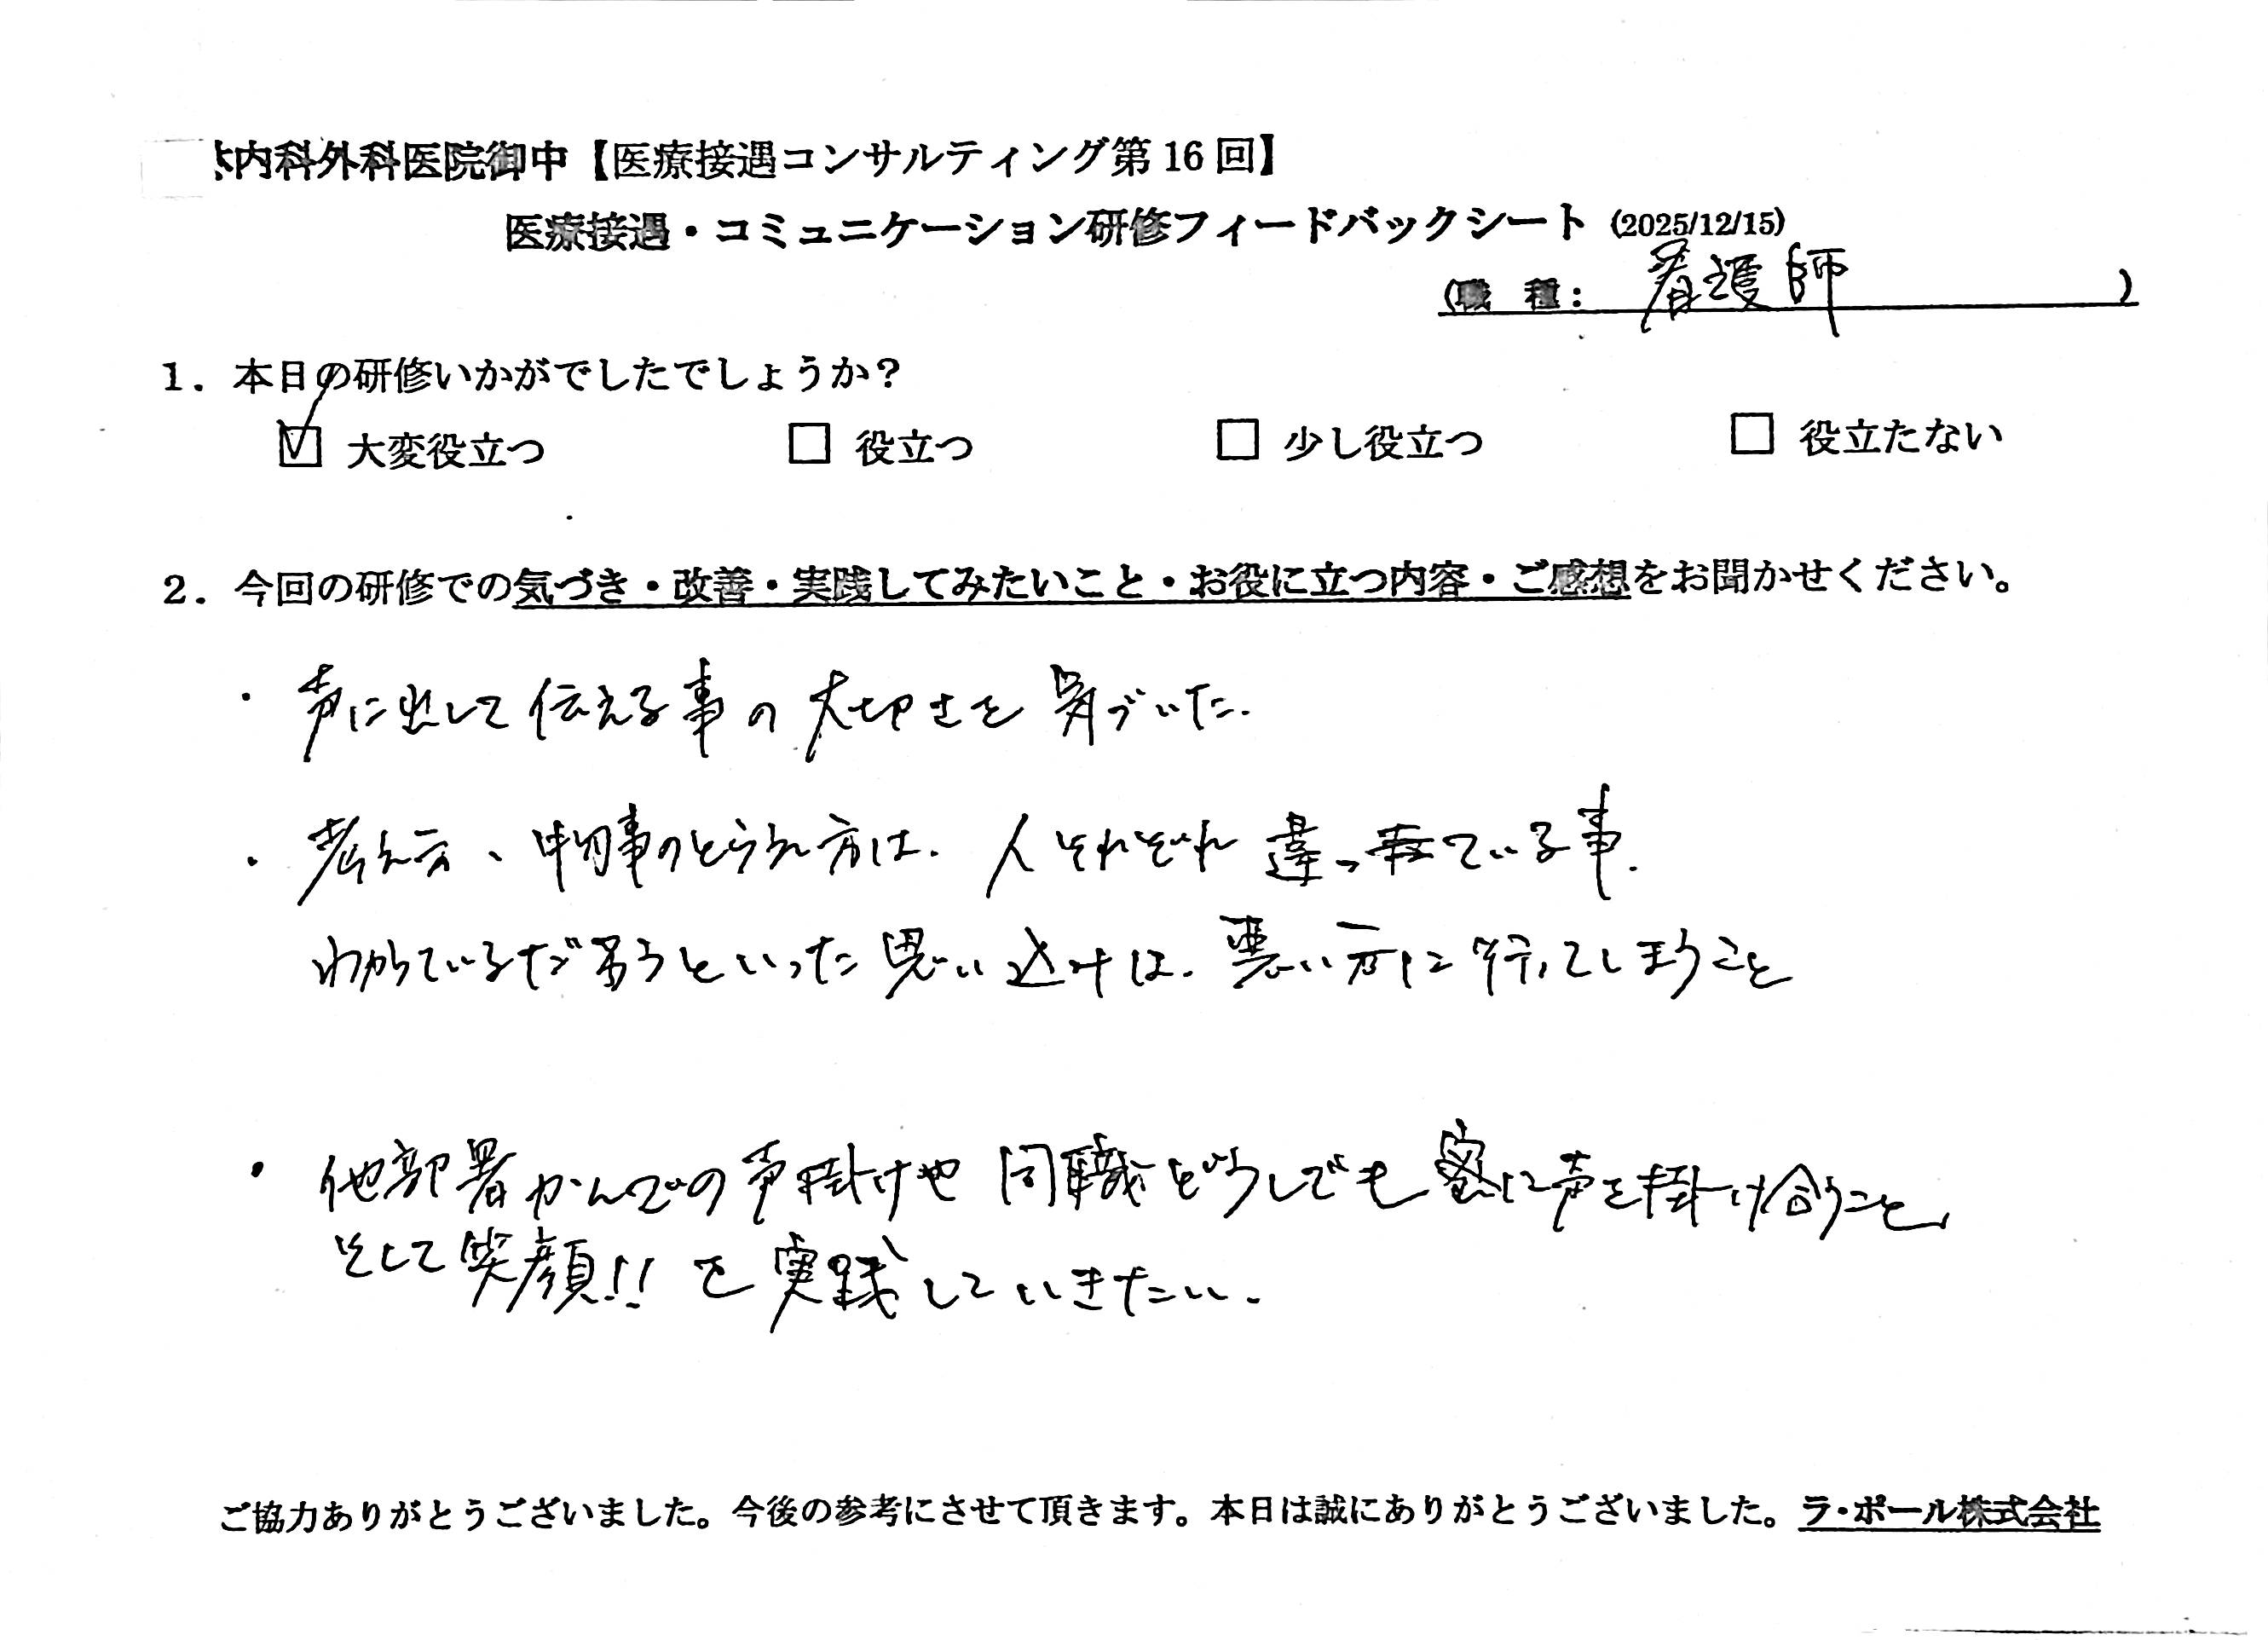 内科外科医院御中【医療接遇コンサルティング第16回】
医療接遇・コミュニケーション研修フィードバックシート (2025/12/15)
(職 種: 看護師 )
1. 本日の研修いかがでしたでしょうか?
☑ 大変役立つ □ 役立つ □ 少し役立つ □ 役立たない
2. 今回の研修での気づき・改善・実践してみたいこと・お役に立つ内容・ご感想をお聞かせください。
・声に出して伝える事の大切さを気づいた.
・考え方、物事のとらえ方は、人それぞれ違っている事.
わかっているだろうといった思い込みは、悪い方に行ってしまうこと
・他部署かんでの声掛けや同職どうしでも密に声を掛け合うこと、
そして笑顔!! を実践していきたい.
ご協力ありがとうございました。今後の参考にさせて頂きます。本日は誠にありがとうございました。ラ・ポール株式会社